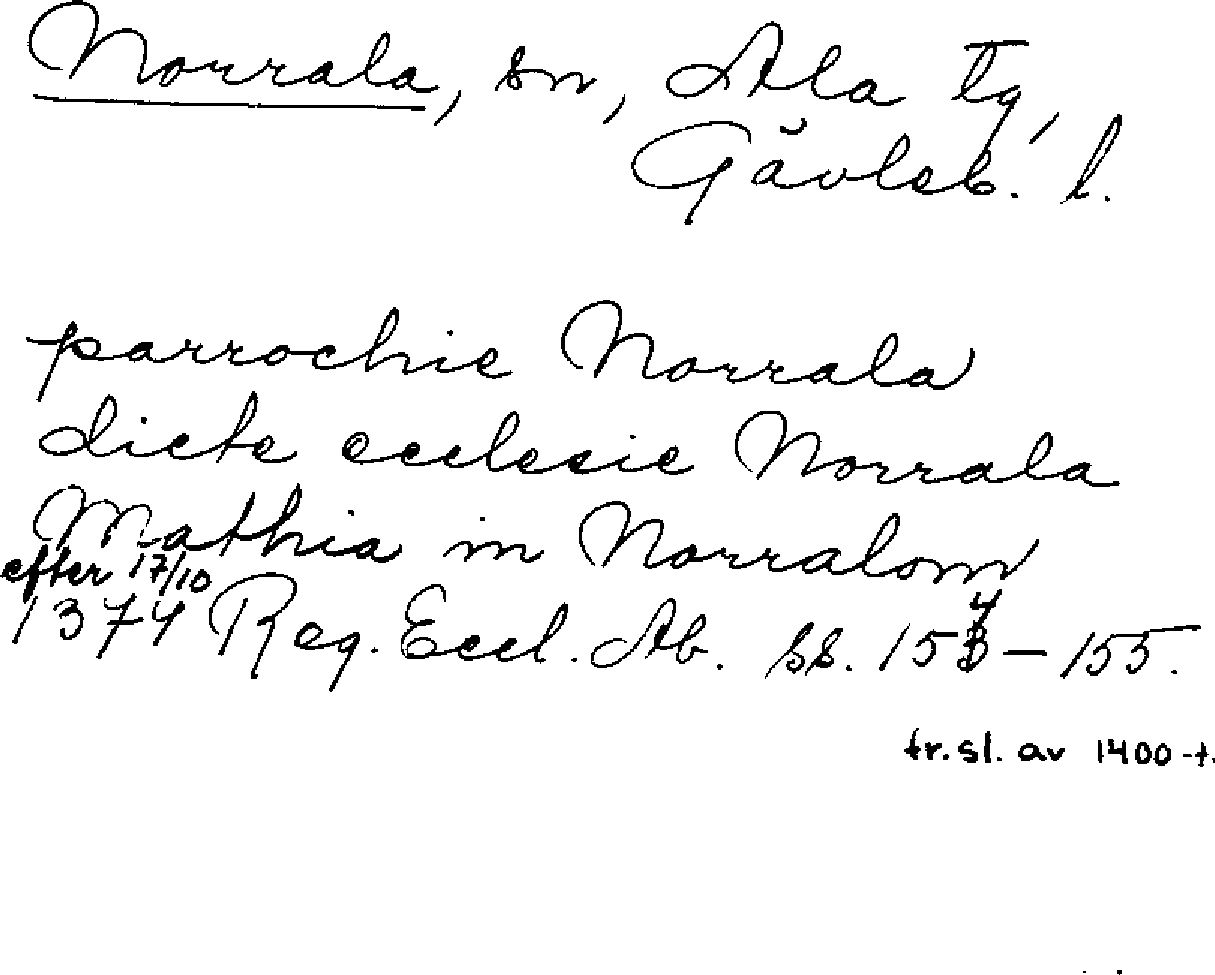 Norrala, sn, Ala tg,
Gävleb. l.
parrochie Norrala
dicte ecclesie Norrala
Mathia in Norralom
efter 17/10
1374 Reg. Eccl. Ab. ss. 154-155.
fr. sl. av 1400-t.